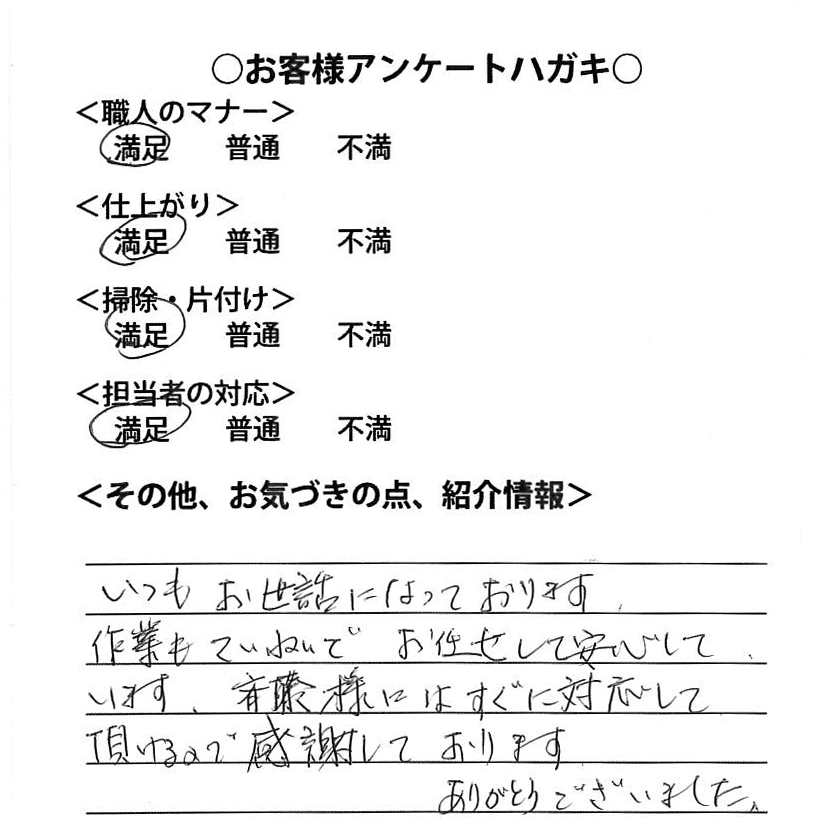 ○お客様アンケートハガキ○
＜職人のマナー＞
満足 普通 不満
＜仕上がり＞
満足 普通 不満
＜掃除・片付け＞
満足 普通 不満
＜担当者の対応＞
満足 普通 不満
＜その他、お気づきの点、紹介情報＞
いつもお世話になっております。
作業もていねいでお任せして安心して
います。斉藤様にはすぐに対応して
頂けるので感謝しております
ありがとうございました。